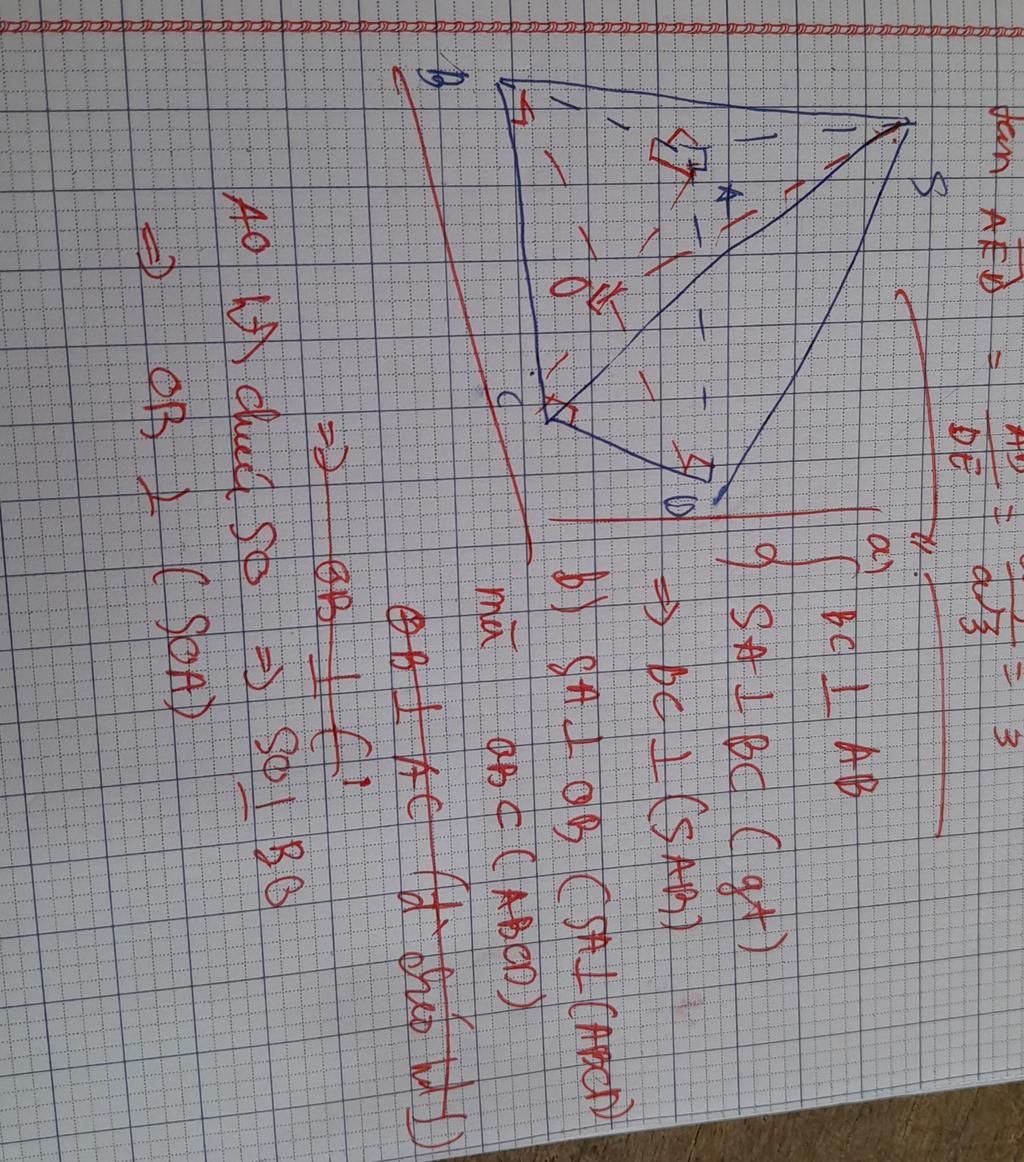 tan AED = AD / DE = = 3
a√3
S
A
B
O
C
D
a) { BC ⊥ AB
SA ⊥ BC (gt)
=> BC ⊥ (SAB)
b) SA ⊥ OB (SA ⊥ (ABCD)
mà OB C (ABCD)
OB ⊥ AC (đ' chéo ht)
=> OB ⊥ (
AO là h chiếu SO => SO ⊥ BO
=> OB ⊥ (SOA)